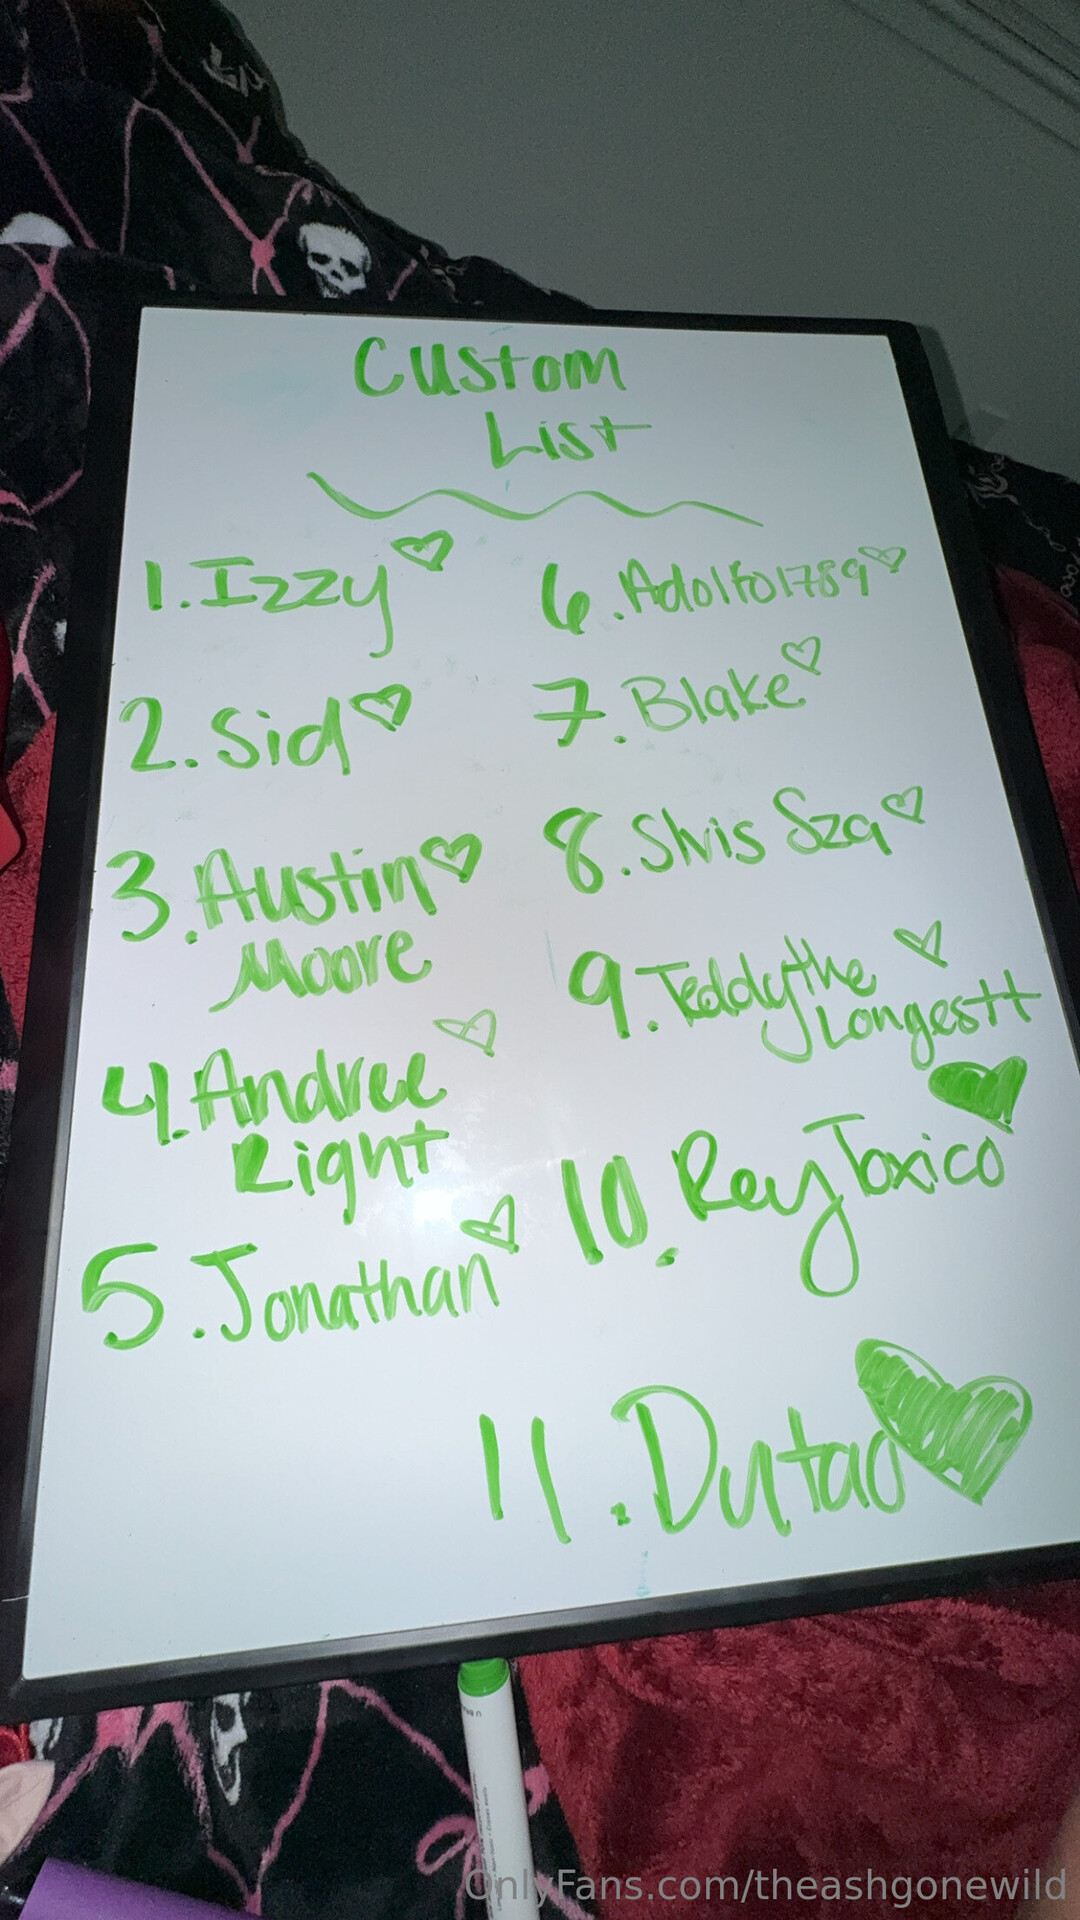 Custom
List
1. Izzy
2. Sid
3. Austin
Moore
4. Andree
Right
5. Jonathan
6. Adolfo1789
7. Blake
8. Slvis Sza
9. Teddythe
Longestt
10. Rey Toxico
11. Dutao
OnlyFans.com/theashgonewild